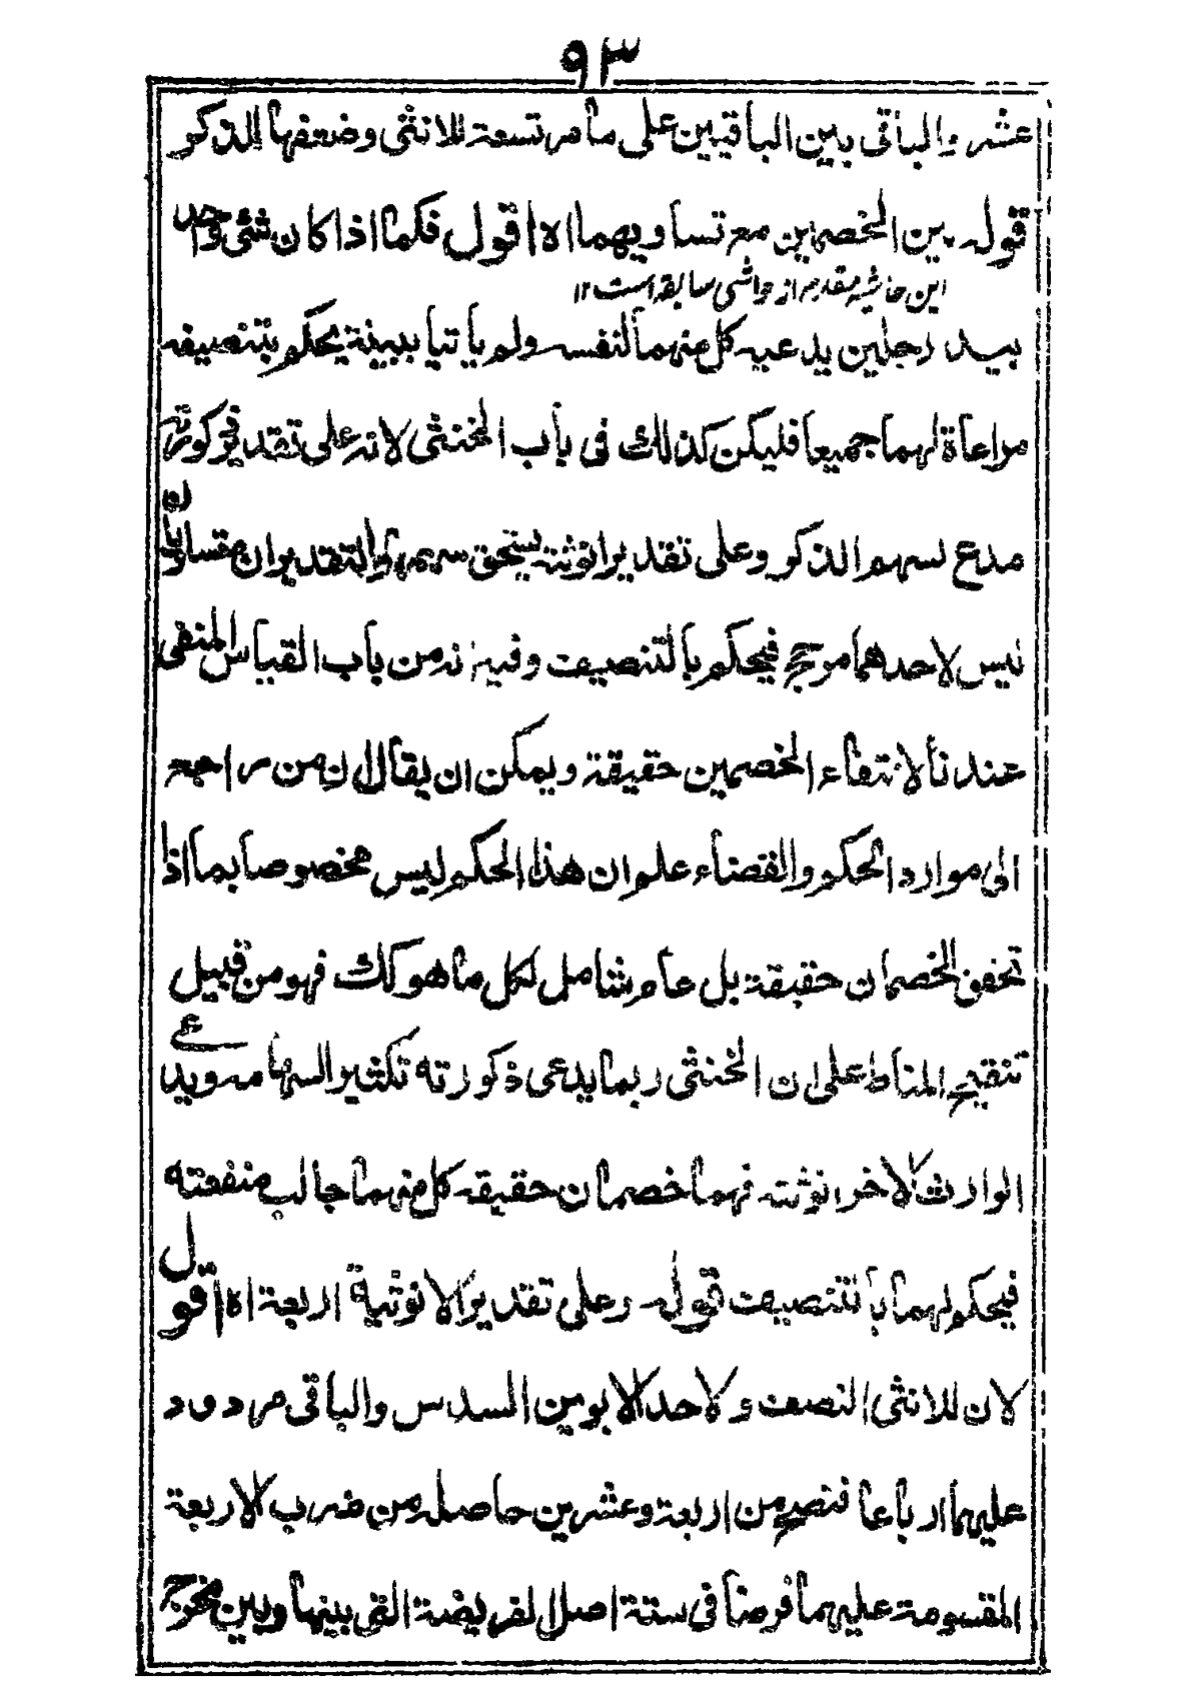 ٩٣
عشر والباقى بين الباقيين على ما مر تسعة للانثى وضعفها للذكر
قوله بين الخصمين مع تساويهما اه اقول فكما اذا كان شئ واحد
اين حاشيه مقدم از حواشى سابقه است ١٢
بيد رجلين يدعيه كل منهما لنفسه ولم ياتيا ببينة يحكم بتنصيفه
مراعاة لهما جميعا فليكن كذلك فى باب الخنثى لانه على تقدير ذكورته
مدع لسهم الذكر وعلى تقدير انوثته يستحق سهمها والتقديران متساويان
ليس لاحدهما مرجح فيحكم بالتنصيف وفيه انه من باب القياس المنفى
عندنا لانتفاء الخصمين حقيقة ويمكن ان يقال ان من راجعه
الى موارد الحكم والقضاء علم ان هذا الحكم ليس مخصوصا بما اذا
تحقق الخصمان حقيقة بل عام شامل لكل ما هو كك فهو من قبيل
تنقيح المناط على ان الخنثى ربما يدعى ذكورته تكثيرا لسهامه ويدعى
الوارث الاخر انوثته فهما خصمان حقيقه كل منهما جالب منفعته
فيحكم لهما بالتنصيف قوله وعلى تقدير الانوثية اربعة اه اقول
لان للانثى النصف ولاحد الابوين السدس والباقى مردود
عليهما ارباعا فتصح من اربعة وعشرين حاصله من ضرب الاربعة
المقسومة عليهما فرضا فى ستة اصل الفريضة التى بينها وبين مخرج